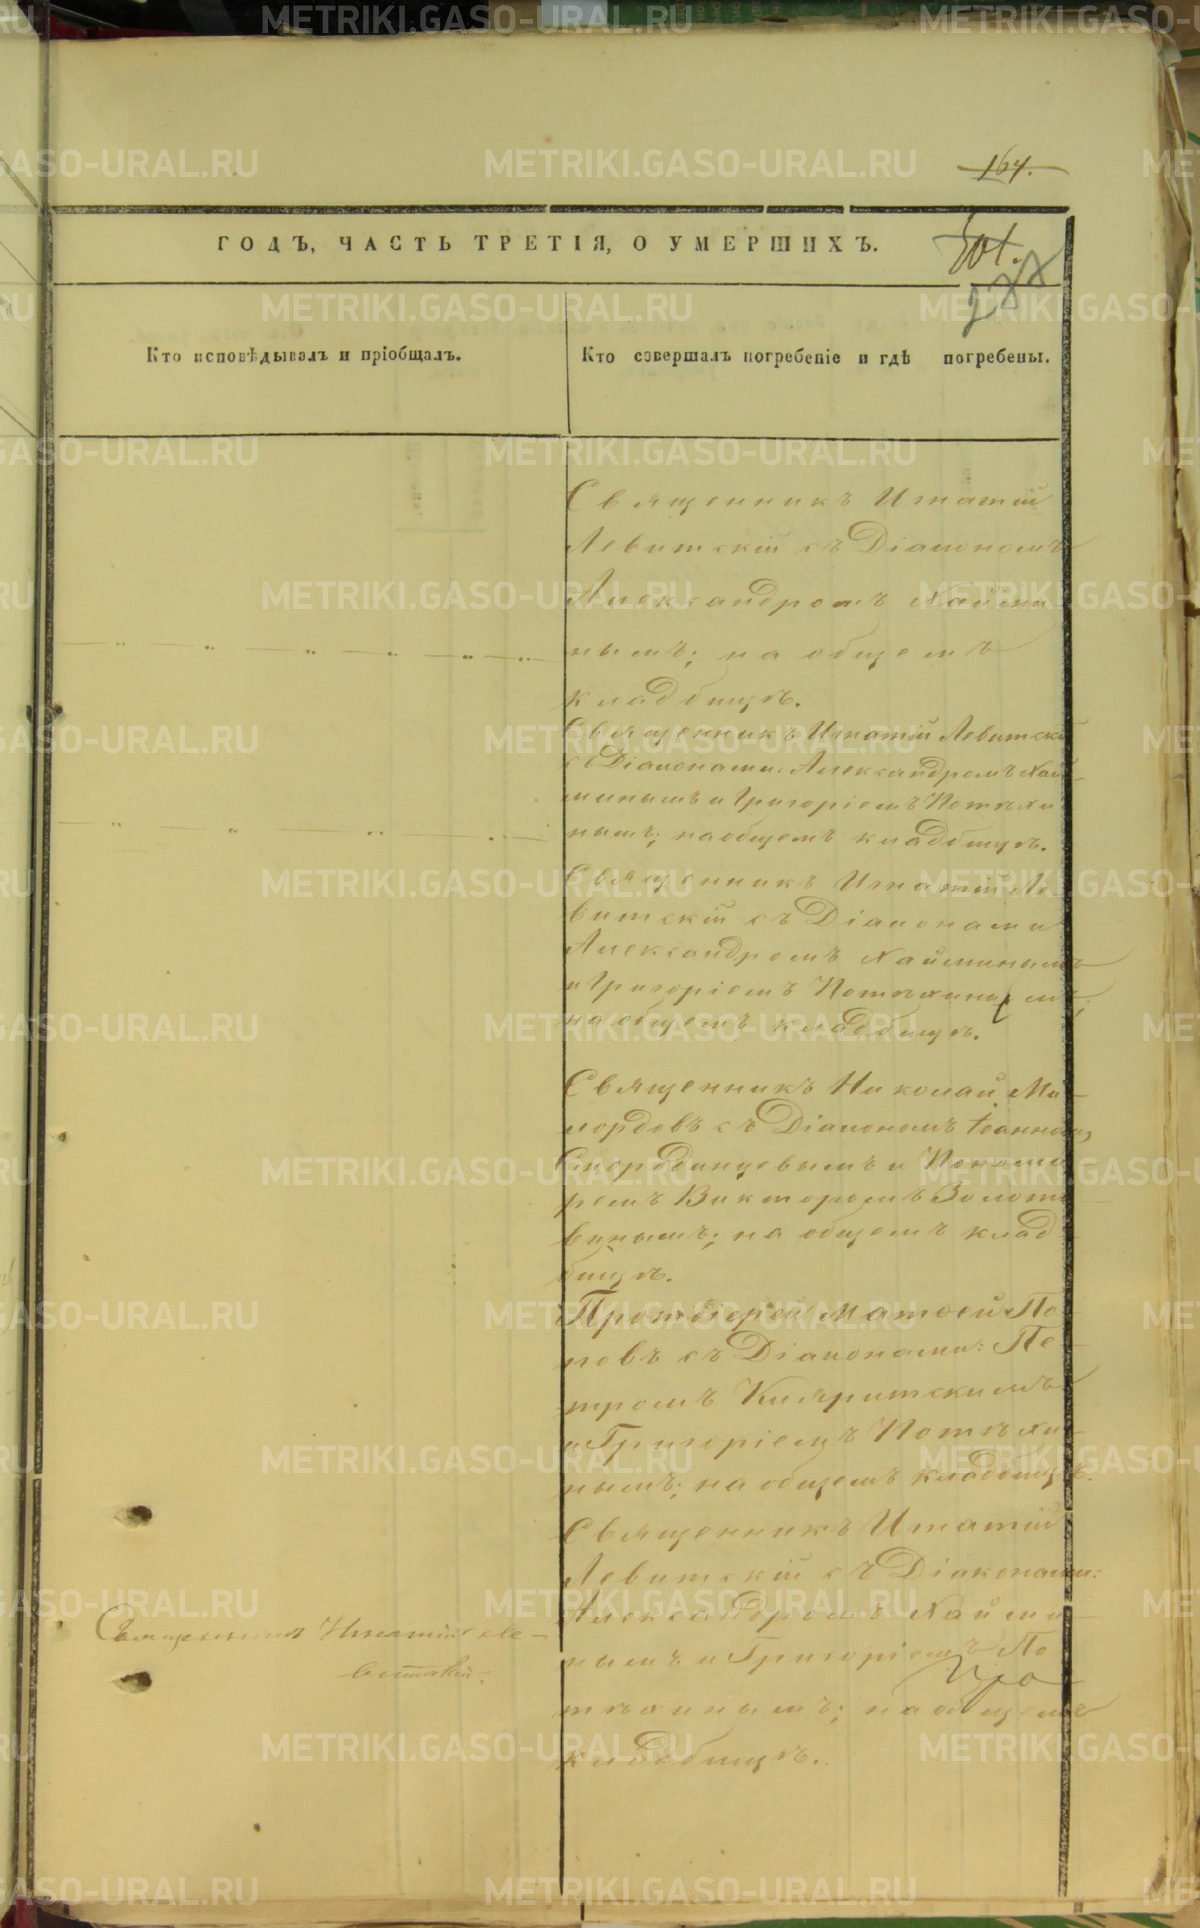 164.
ГОДЪ, ЧАСТЬ ТРЕТІЯ, О УМЕРШИХЪ.
Кто исповѣдывалъ и пріобщалъ.
Кто совершалъ погребеніе и гдѣ погребены.
Священникъ Игнатій
Левитскій съ Діакономъ
Александромъ Хайми
нымъ; на общемъ
кладбищѣ.
Священникъ Игнатій Левитскій
съ Діаконами: Александромъ Хай-
минымъ и Григоріемъ Потѣхи
нымъ; на общемъ кладбищѣ.
Священникъ Игнатій Ле
витскій съ Діаконами
Александромъ Хайминымъ
и Григоріемъ Потѣхинымъ;
на общемъ кладбищѣ.
Священникъ Николай Ми-
лордовъ съ Діакономъ Іоанномъ
Скородинцевымъ и Пономо
ремъ Викторомъ Золото
винымъ; на общемъ клад
бищѣ.
Протоіерей Матѳей По-
повъ съ Діаконами: Пе-
тромъ
и Григоріемъ Потѣхи-
нымъ; на общемъ кладбищѣ.
Священникъ Игнатій
Левитскій съ Діаконами:
Александромъ Хайми-
нымъ и Григоріемъ По
тѣхинымъ; на общемъ
кладбищѣ.
Священникъ Игнатій Ле-
витскій.
METRIKI.GASO-URAL.RU